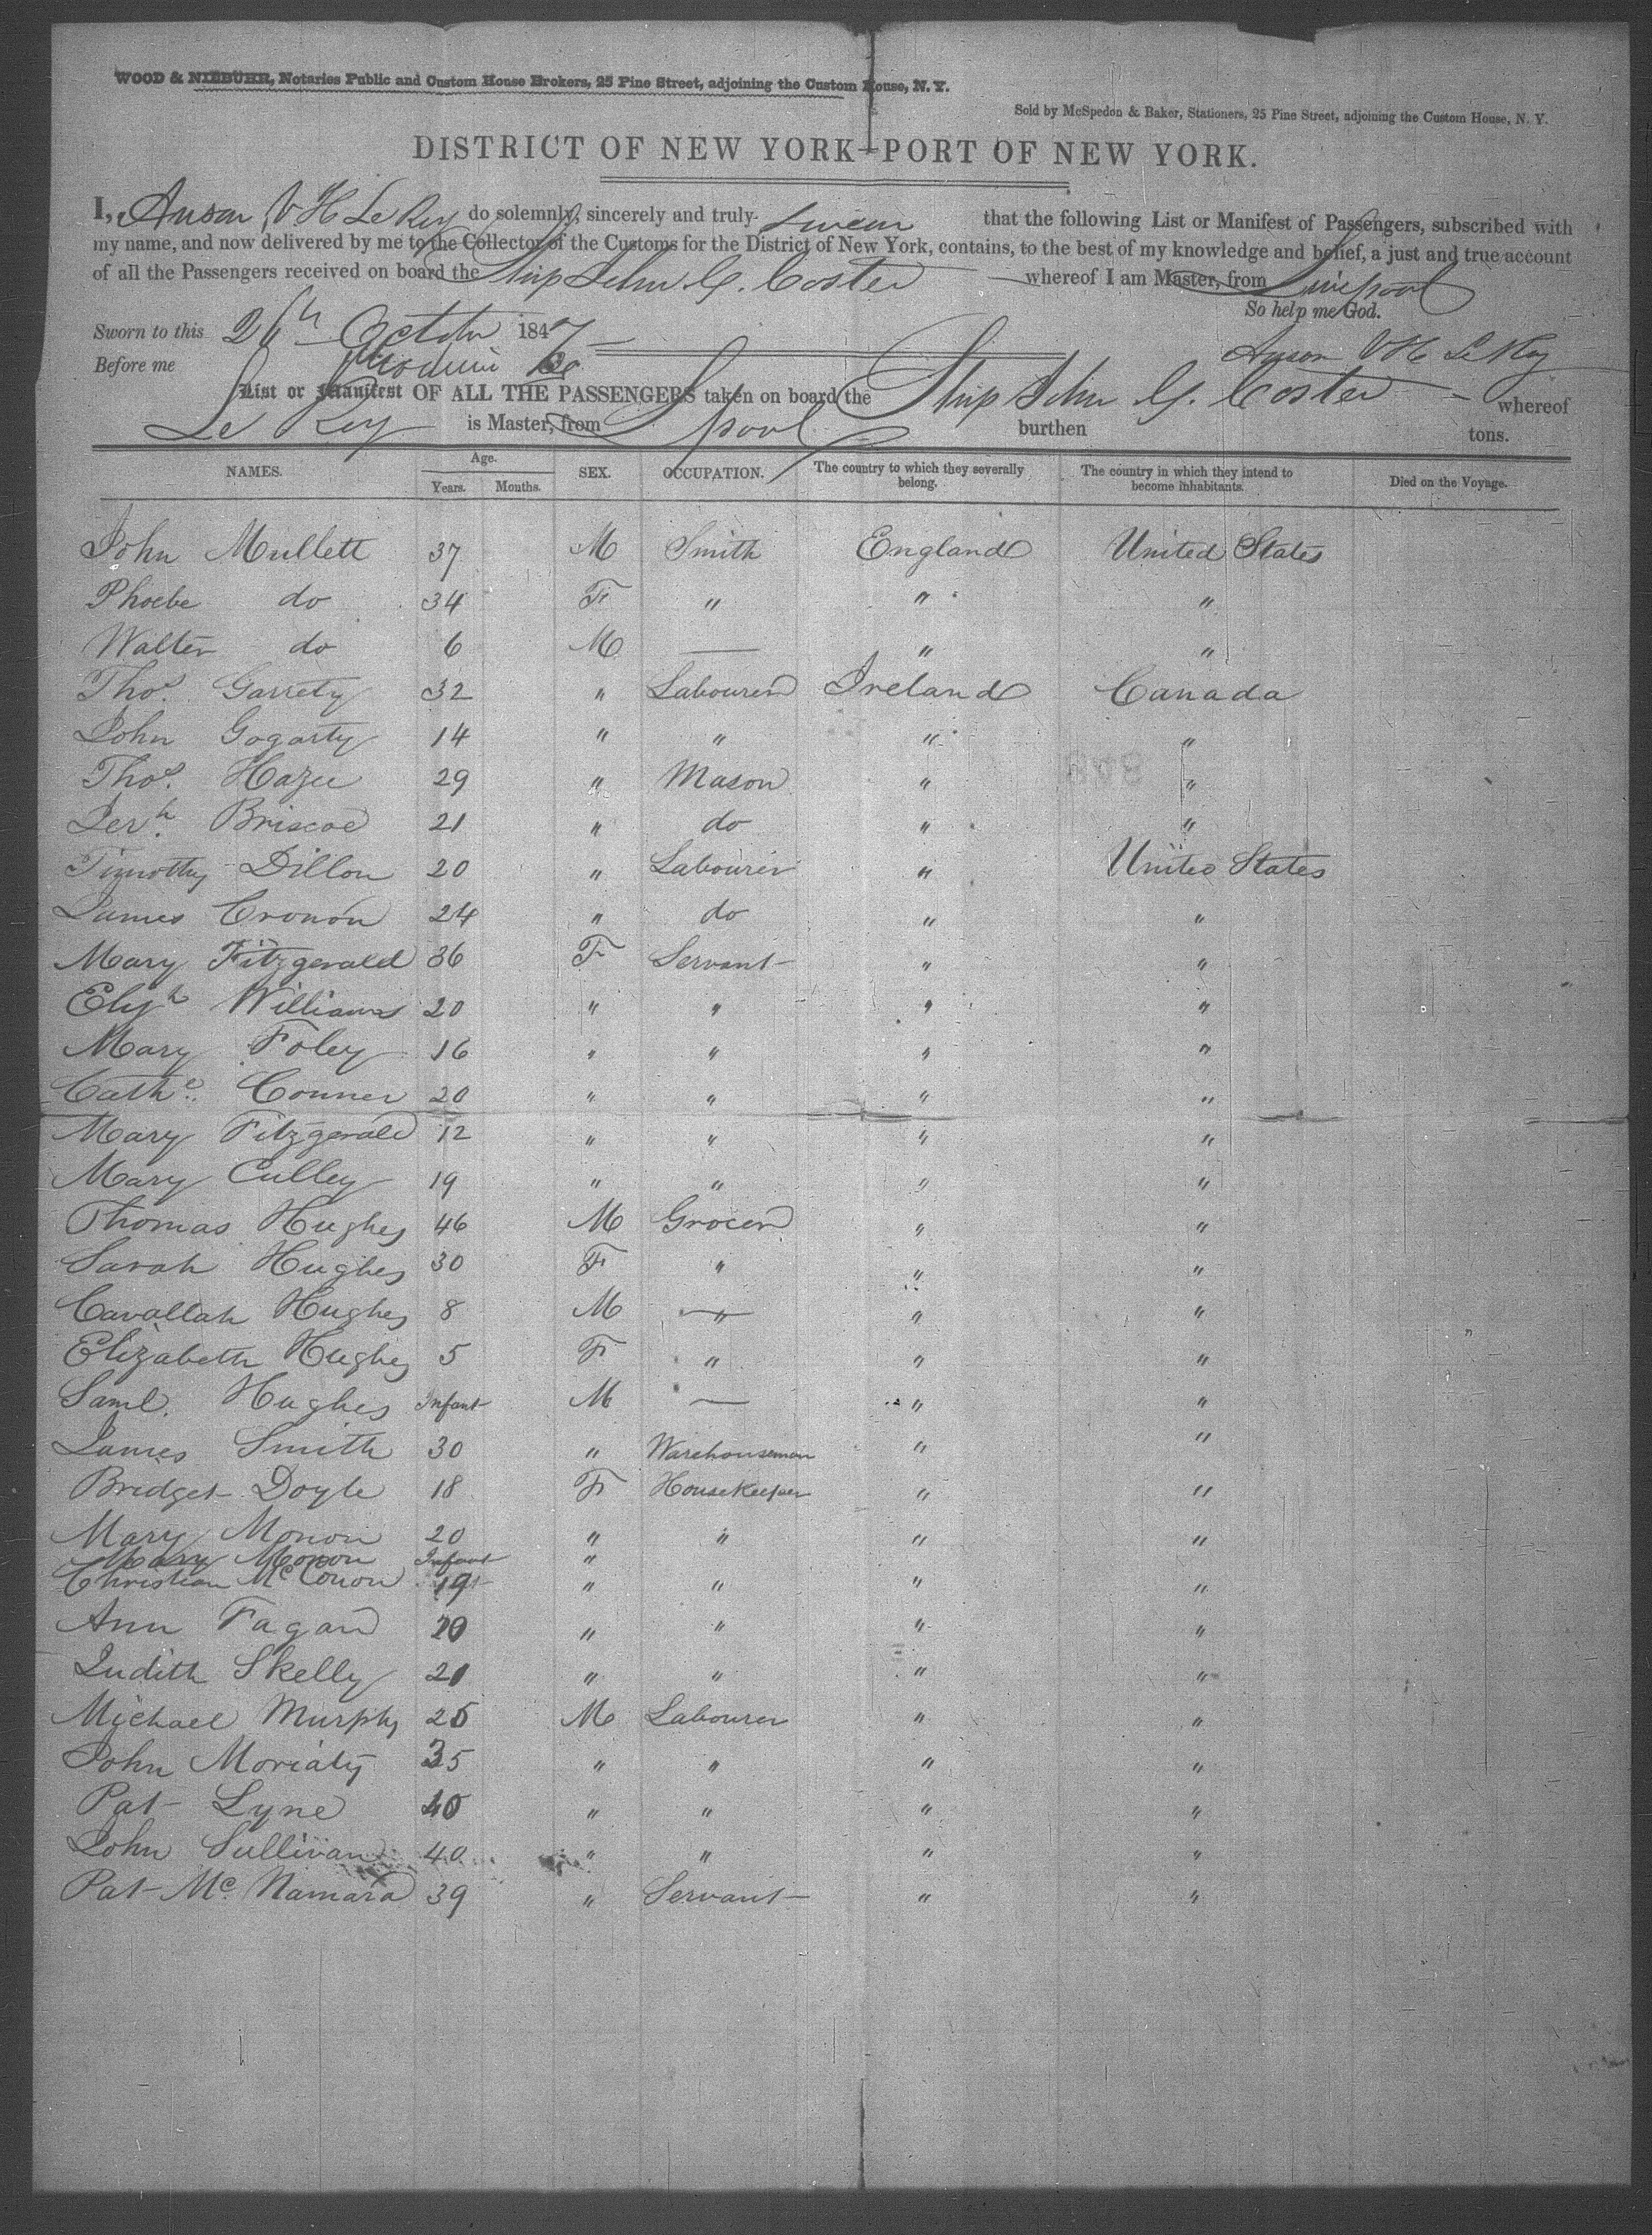 WOOD & NIEBUHR, Notaries Public and Custom House Brokers, 25 Pine Street, adjoining the Custom House, N. Y.
Sold by McSpedon & Baker, Stationers, 25 Pine Street, adjoining the Custom House, N. Y.
DISTRICT OF NEW YORK—PORT OF NEW YORK.
I, Anson V H Le Roy do solemnly, sincerely and truly swear that the following List or Manifest of Passengers, subscribed with
my name, and now delivered by me to the Collector of the Customs for the District of New York, contains, to the best of my knowledge and belief, a just and true account
of all the Passengers received on board the Ship John G. Coster whereof I am Master, from Liverpool
So help me God.
Sworn to this 26th October 1847
Before me
Anson V H Le Roy
List or Manifest OF ALL THE PASSENGERS taken on board the Ship John G. Coster whereof
Le Roy is Master, from Lpool burthen tons.
NAMES. Age. Years. Months. SEX. OCCUPATION. The country to which they severally belong. The country in which they intend to become inhabitants. Died on the Voyage.
John Mullett 37 M Smith England United States
Phoebe do 34 F " " "
Walter do 6 M — " "
Thos. Garrety 32 " Labourer Ireland Canada
John Gogarty 14 " " " "
Thos. Hazee 29 " Mason " "
Jerh. Briscoe 21 " do " "
Timothy Dillon 20 " Labourer " United States
James Cronon 24 " do " "
Mary Fitzgerald 36 F Servant " "
Elizh Williams 20 " " " "
Mary Foley 16 " " " "
Cathe. Conner 20 " " " "
Mary Fitzgerald 12 " " " "
Mary Culley 19 " " " "
Thomas Hughes 46 M Grocer " "
Sarah Hughes 30 F " " "
Cavallah Hughes 8 M — " " "
Elizabeth Hughes 5 F " " "
Saml. Hughes Infant M — " "
James Smith 30 " Warehouseman " "
Bridget Doyle 18 F Housekeeper " "
Mary Monon 20 " " " "
Mary Monon Infant "
Christian McConon 19 " " " "
Ann Fagan 20 " " " "
Judith Skelly 20 " " " "
Michael Murphy 25 M Labourer " "
John Moriaty 35 " " " "
Pat Lyne 40 " " " "
John Sullivan 40 " " " "
Pat McNamara 39 " Servant " "